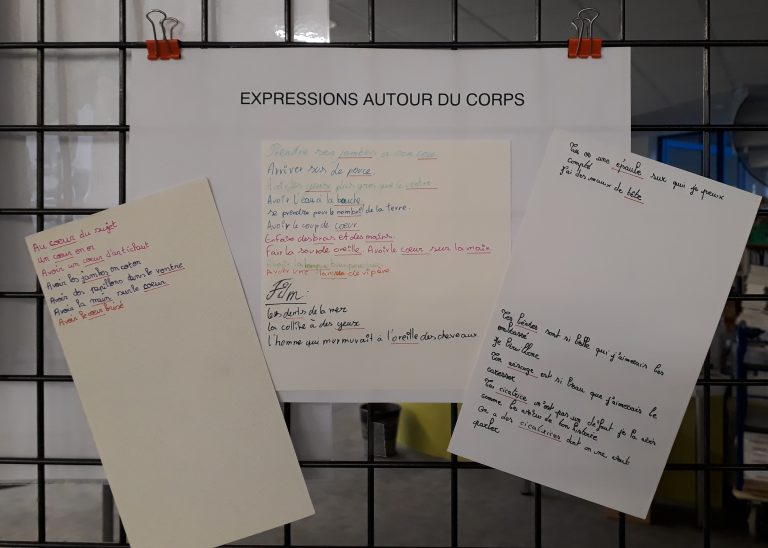 EXPRESSIONS AUTOUR DU CORPS
Au coeur du sujet
Un coeur en or
Avoir un coeur d'artichaut
Avoir les jambes en coton
Avoir des papillons dans le ventre
Avoir la main sur le coeur
Avoir le coeur brisé
Prendre ses jambes à son cou
Arriver sus de pouce
Avoir les yeux plus gros que le ventre
Avoir l'eau à la bouche
se prendre pour le nombril de la terre.
Avoir le coup de coeur
En faire des bras et des mains.
Fair la sourde oreille. Avoir le coeur sur la main
Avoir une de vipère
Film:
les dents de la mer
la colline à des yeux
l'homme qui murmurait à l'oreille des cheveaux
Tu as une épaule sur qui je peux
compté
J'ai des maux de tête
Tes lèvres sont si belle qui j'aimerais les
embrassé
Je peau
Ton visage est si beau que j'aimerais le
caresser
Ta cicatrice n'est pas un défaut je la
comme les de ton histoire
On a des cicatrices dont on ne veut
parler